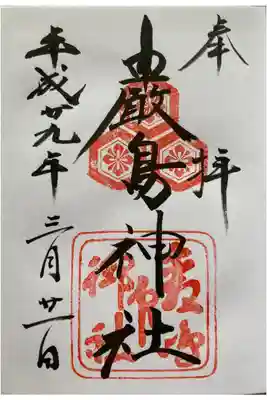 奉拝
嚴島神社
平成廿九年三月廿一日
嚴島
御神社